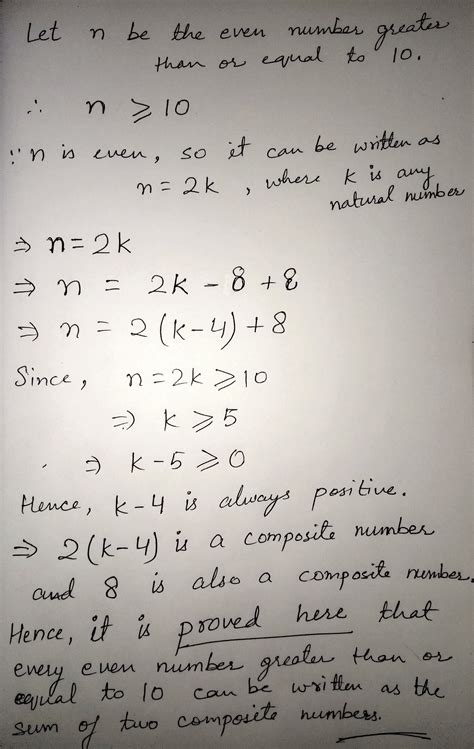 Let n be the even number greater
than or equal to 10.
∴ n ⩾ 10
∵ n is even, so it can be written as
n = 2k , where k is any
natural number
⇒ n = 2k
⇒ n = 2k - 8 + 8
⇒ n = 2(k-4) + 8
Since, n = 2k ⩾ 10
⇒ k ⩾ 5
⇒ k - 5 ⩾ 0
Hence, k-4 is always positive.
⇒ 2(k-4) is a composite number
and 8 is also a composite number.
Hence, it is proved here that
every even number greater than or
equal to 10 can be written as the
sum of two composite numbers.